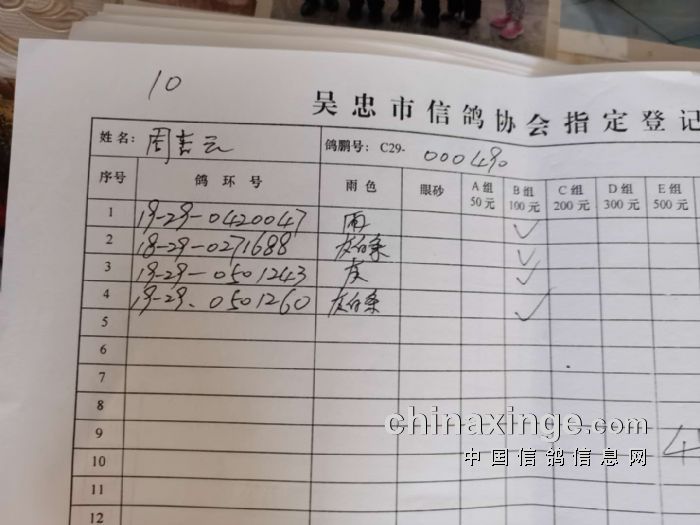 10
吴忠市信鸽协会指定登记
姓名: 周喜云 鸽鹏号: C29- 000490
序号 鸽环号 雨色 眼砂 A组 50元 B组 100元 C组 200元 D组 300元 E组 500元
1 19-29-0420047 雨 ✓
2 18-29-0271688 灰白条 ✓
3 19-29-0501243 灰 ✓
4 19-29-0501260 灰白条 ✓
5
6
7
8
9
10
11
12
chinaxinge.com
中国信鸽信息网